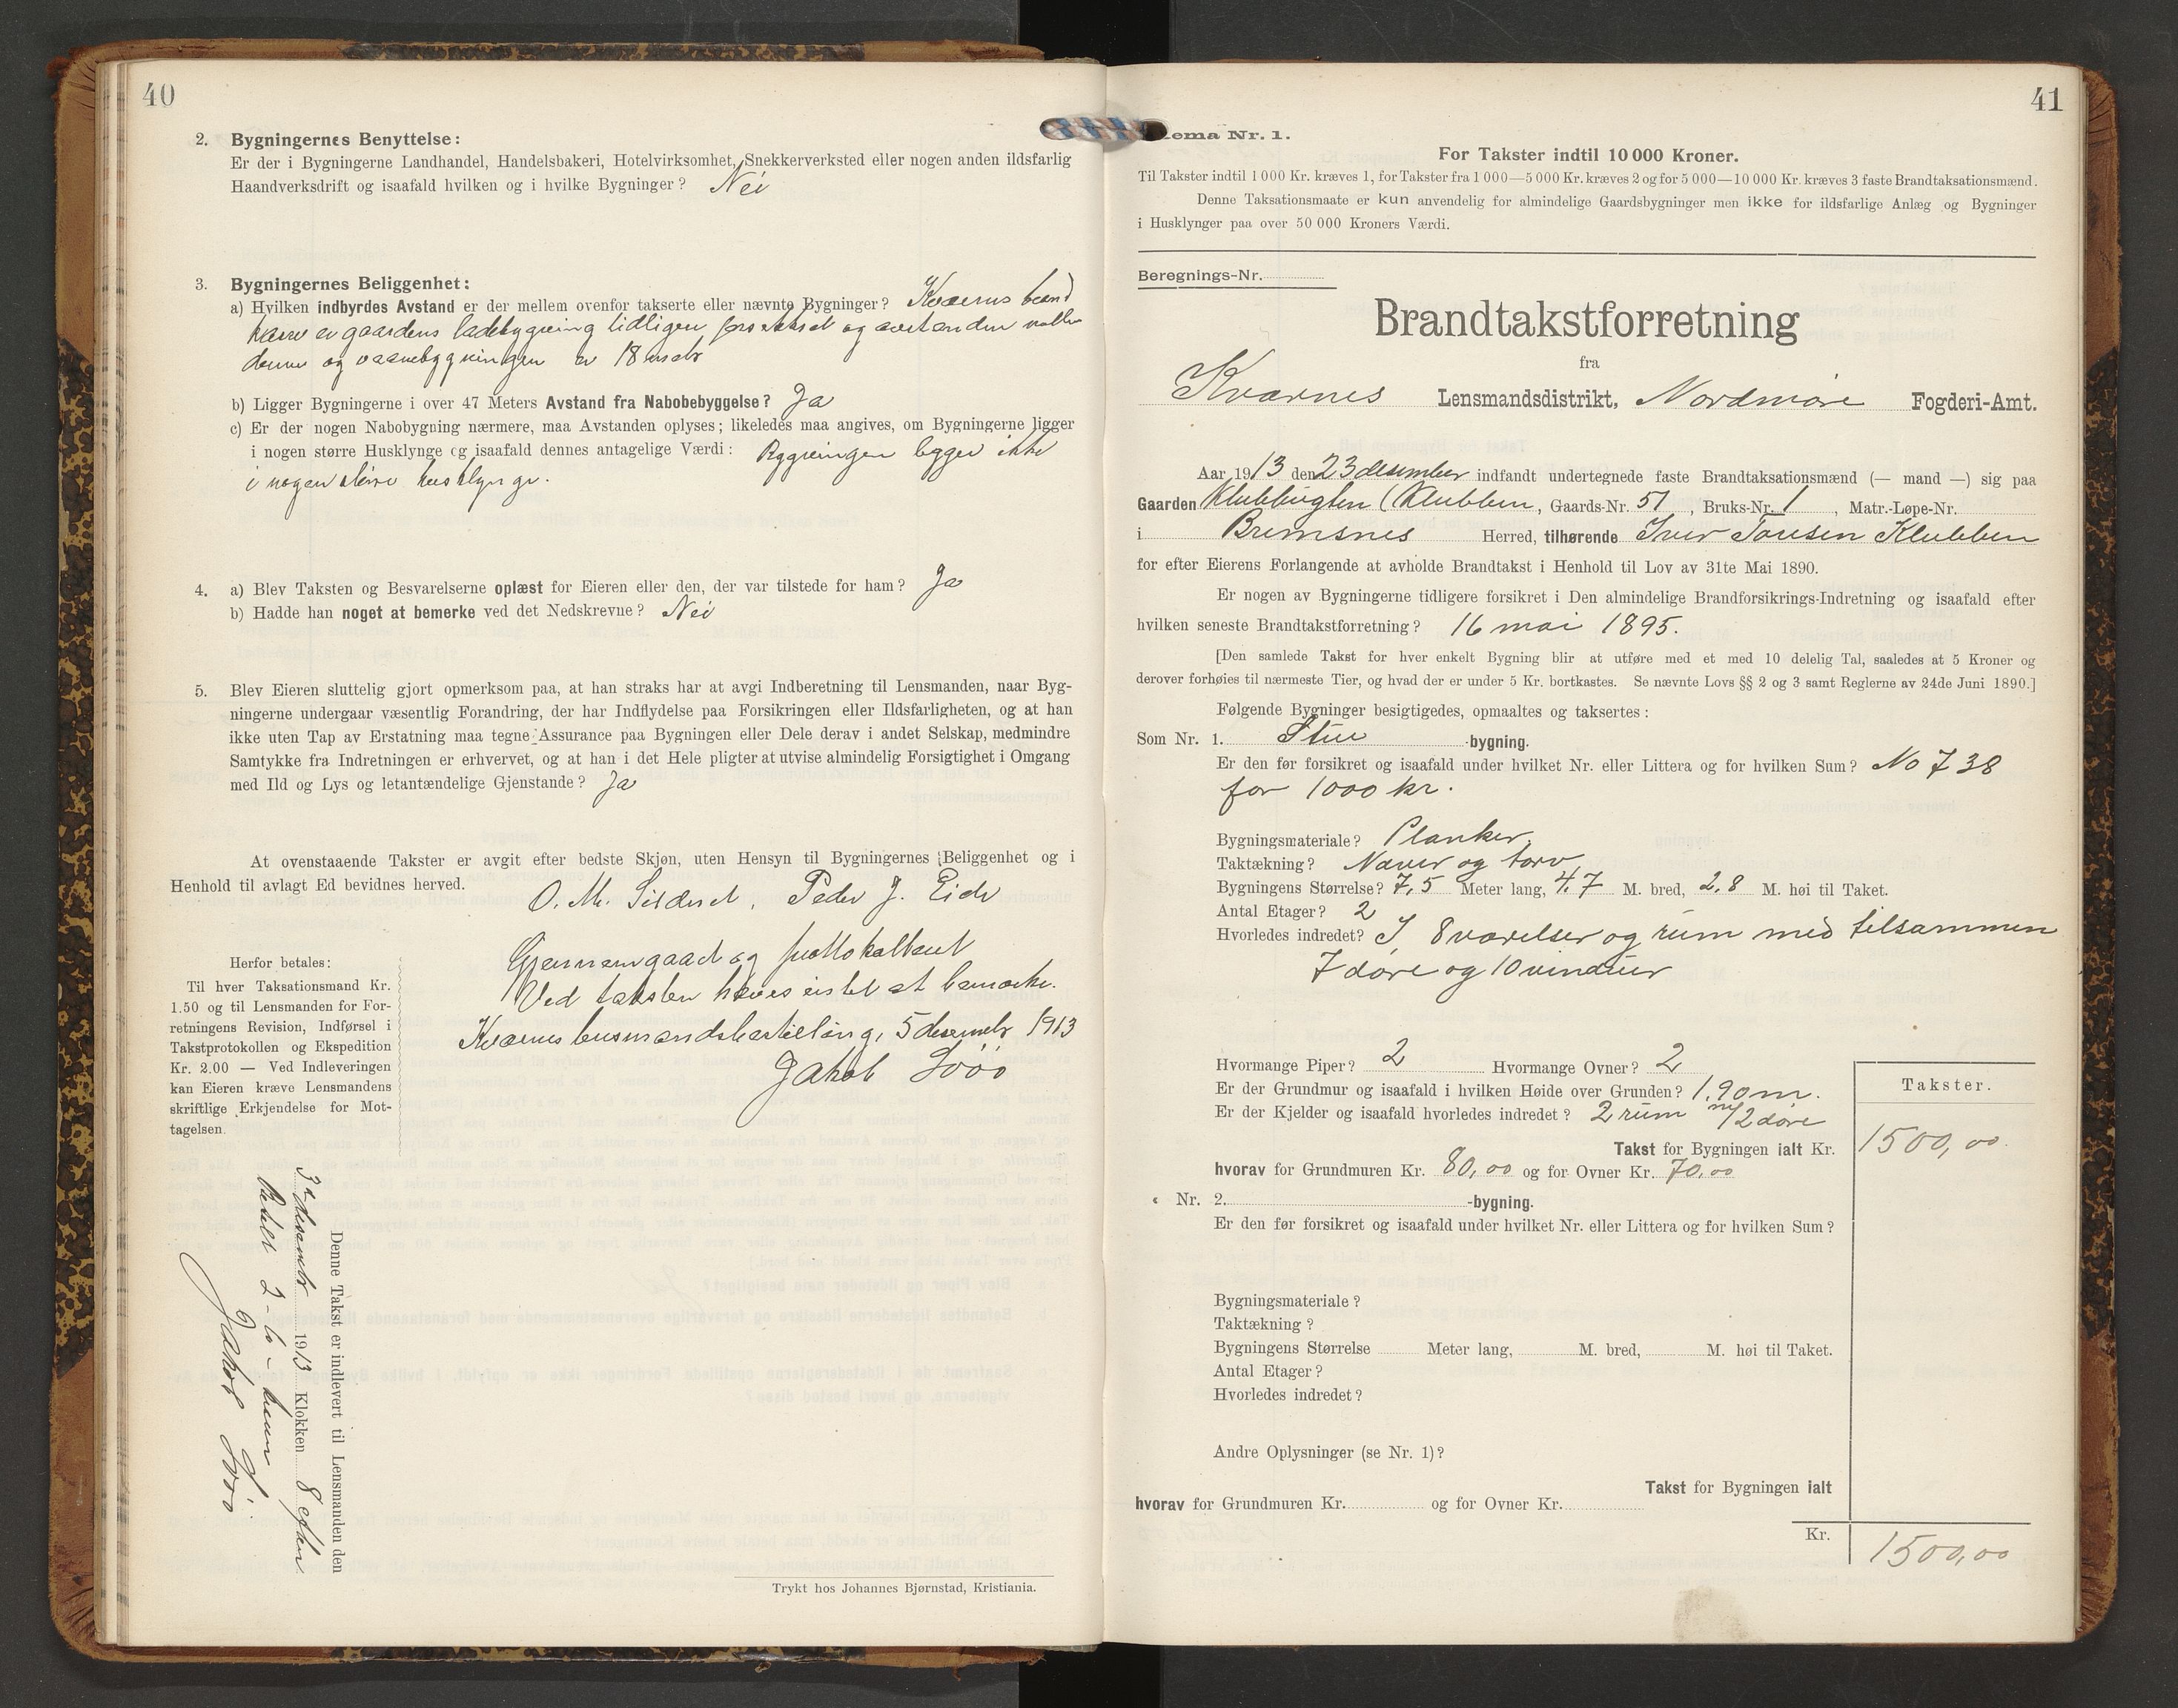 40
2. Bygningernes Benyttelse:
Er der i Bygningerne Landhandel, Handelsbakeri, Hotelvirksomhet, Snekkerverksted eller nogen anden ildsfarlig
Haandverksdrift og isaafald hvilken og i hvilke Bygninger? Nei
3. Bygningernes Beliggenhet:
a) Hvilken indbyrdes Avstand er der mellem ovenfor takserte eller nævnte Bygninger? Kværns
gaardens ladebygning tidligere og avstanden
denne og vaanebygningen er 18 metr
b) Ligger Bygningerne i over 47 Meters Avstand fra Nabobebyggelse? Ja
c) Er der nogen Nabobygning nærmere, maa Avstanden oplyses; likeledes maa angives, om Bygningerne ligger
i nogen større Husklynge og isaafald dennes antagelige Værdi: Bygningen ligger ikke
i nogen større husklynge.
4. a) Blev Taksten og Besvarelserne oplæst for Eieren eller den, der var tilstede for ham? Ja
b) Hadde han noget at bemerke ved det Nedskrevne? Nei
5. Blev Eieren sluttelig gjort opmerksom paa, at han straks har at avgi Indberetning til Lensmanden, naar Byg-
ningerne undergaar væsentlig Forandring, der har Indflydelse paa Forsikringen eller Ildsfarligheten, og at han
ikke uten Tap av Erstatning maa tegne Assurance paa Bygningen eller Dele derav i andet Selskap, medmindre
Samtykke fra Indretningen er erhvervet, og at han i det Hele pligter at utvise almindelig Forsigtighet i Omgang
med Ild og Lys og letantændelige Gjenstande? Ja
At ovenstaaende Takster er avgit efter bedste Skjøn, uten Hensyn til Bygningernes Beliggenhet og i
Henhold til avlagt Ed bevidnes herved.
O. M. Sildset, Peder J. Eide
Gjennemgaaet og protokollert
Ved taksten haves intet at bemerke.
Kværnes lensmandsbestilling, 5 desembr 1913
Jakob
Herfor betales:
Til hver Taksationsmand Kr.
1.50 og til Lensmanden for For-
retningens Revision, Indførsel i
Takstprotokollen og Ekspedition
Kr. 2.00 — Ved Indleveringen
kan Eieren kræve Lensmandens
skriftlige Erkjendelse for Mot-
tagelsen.
Denne Takst er indlevert til Lensmanden den
3 desembr 1913 Klokken 8 efter
Betalt 2 - to - kroner
Jakob
Trykt hos Johannes Bjørnstad, Kristiania.
41
ema Nr. 1.
For Takster indtil 10 000 Kroner.
Til Takster indtil 1 000 Kr. kræves 1, for Takster fra 1 000—5 000 Kr. kræves 2 og for 5 000—10 000 Kr. kræves 3 faste Brandtaksationsmænd.
Denne Taksationsmaate er kun anvendelig for almindelige Gaardsbygninger men ikke for ildsfarlige Anlæg og Bygninger
i Husklynger paa over 50 000 Kroners Værdi.
Beregnings-Nr.
Brandtakstforretning
fra
Kværnes Lensmandsdistrikt, Nordmøre Fogderi-Amt.
Aar 1913 den 23 desember indfandt undertegnede faste Brandtaksationsmænd (— mand —) sig paa
Gaarden Klubbugten (Klubben, Gaards-Nr. 51, Bruks-Nr. 1, Matr.-Løpe-Nr.
i Bremsnes Herred, tilhørende Iver Tousen Klubben
for efter Eierens Forlangende at avholde Brandtakst i Henhold til Lov av 31te Mai 1890.
Er nogen av Bygningerne tidligere forsikret i Den almindelige Brandforsikrings-Indretning og isaafald efter
hvilken seneste Brandtakstforretning? 16 mai 1895.
[Den samlede Takst for hver enkelt Bygning blir at utføre med et med 10 delelig Tal, saaledes at 5 Kroner og
derover forhøies til nærmeste Tier, og hvad der er under 5 Kr. bortkastes. Se nævnte Lovs §§ 2 og 3 samt Reglerne av 24de Juni 1890.]
Følgende Bygninger besigtigedes, opmaaltes og taksertes:
Som Nr. 1. Stue -bygning.
Er den før forsikret og isaafald under hvilket Nr. eller Littera og for hvilken Sum? No 738
for 1000 kr.
Bygningsmateriale? Planker,
Taktækning? Næver og torv
Bygningens Størrelse? 7,5 Meter lang, 4,7 M. bred, 2,8 M. høi til Taket.
Antal Etager? 2
Hvorledes indredet? I 8 værelser og rum med tilsammen
7 døre og 10 vinduer
Hvormange Piper? 2 Hvormange Ovner? 2
Er der Grundmur og isaafald i hvilken Høide over Grunden? 1,90 m.
Er der Kjelder og isaafald hvorledes indredet? 2 rum m/ 2 døre
Takster.
Takst for Bygningen ialt Kr. 1500,00
hvorav for Grundmuren Kr. 80,00 og for Ovner Kr. 70,00
Nr. 2. -bygning.
Er den før forsikret og isaafald under hvilket Nr. eller Littera og for hvilken Sum?
Bygningsmateriale?
Taktækning?
Bygningens Størrelse Meter lang, M. bred, M. høi til Taket.
Antal Etager?
Hvorledes indredet?
Andre Oplysninger (se Nr. 1)?
Takst for Bygningen ialt
hvorav for Grundmuren Kr. og for Ovner Kr.
Kr. 1500,00